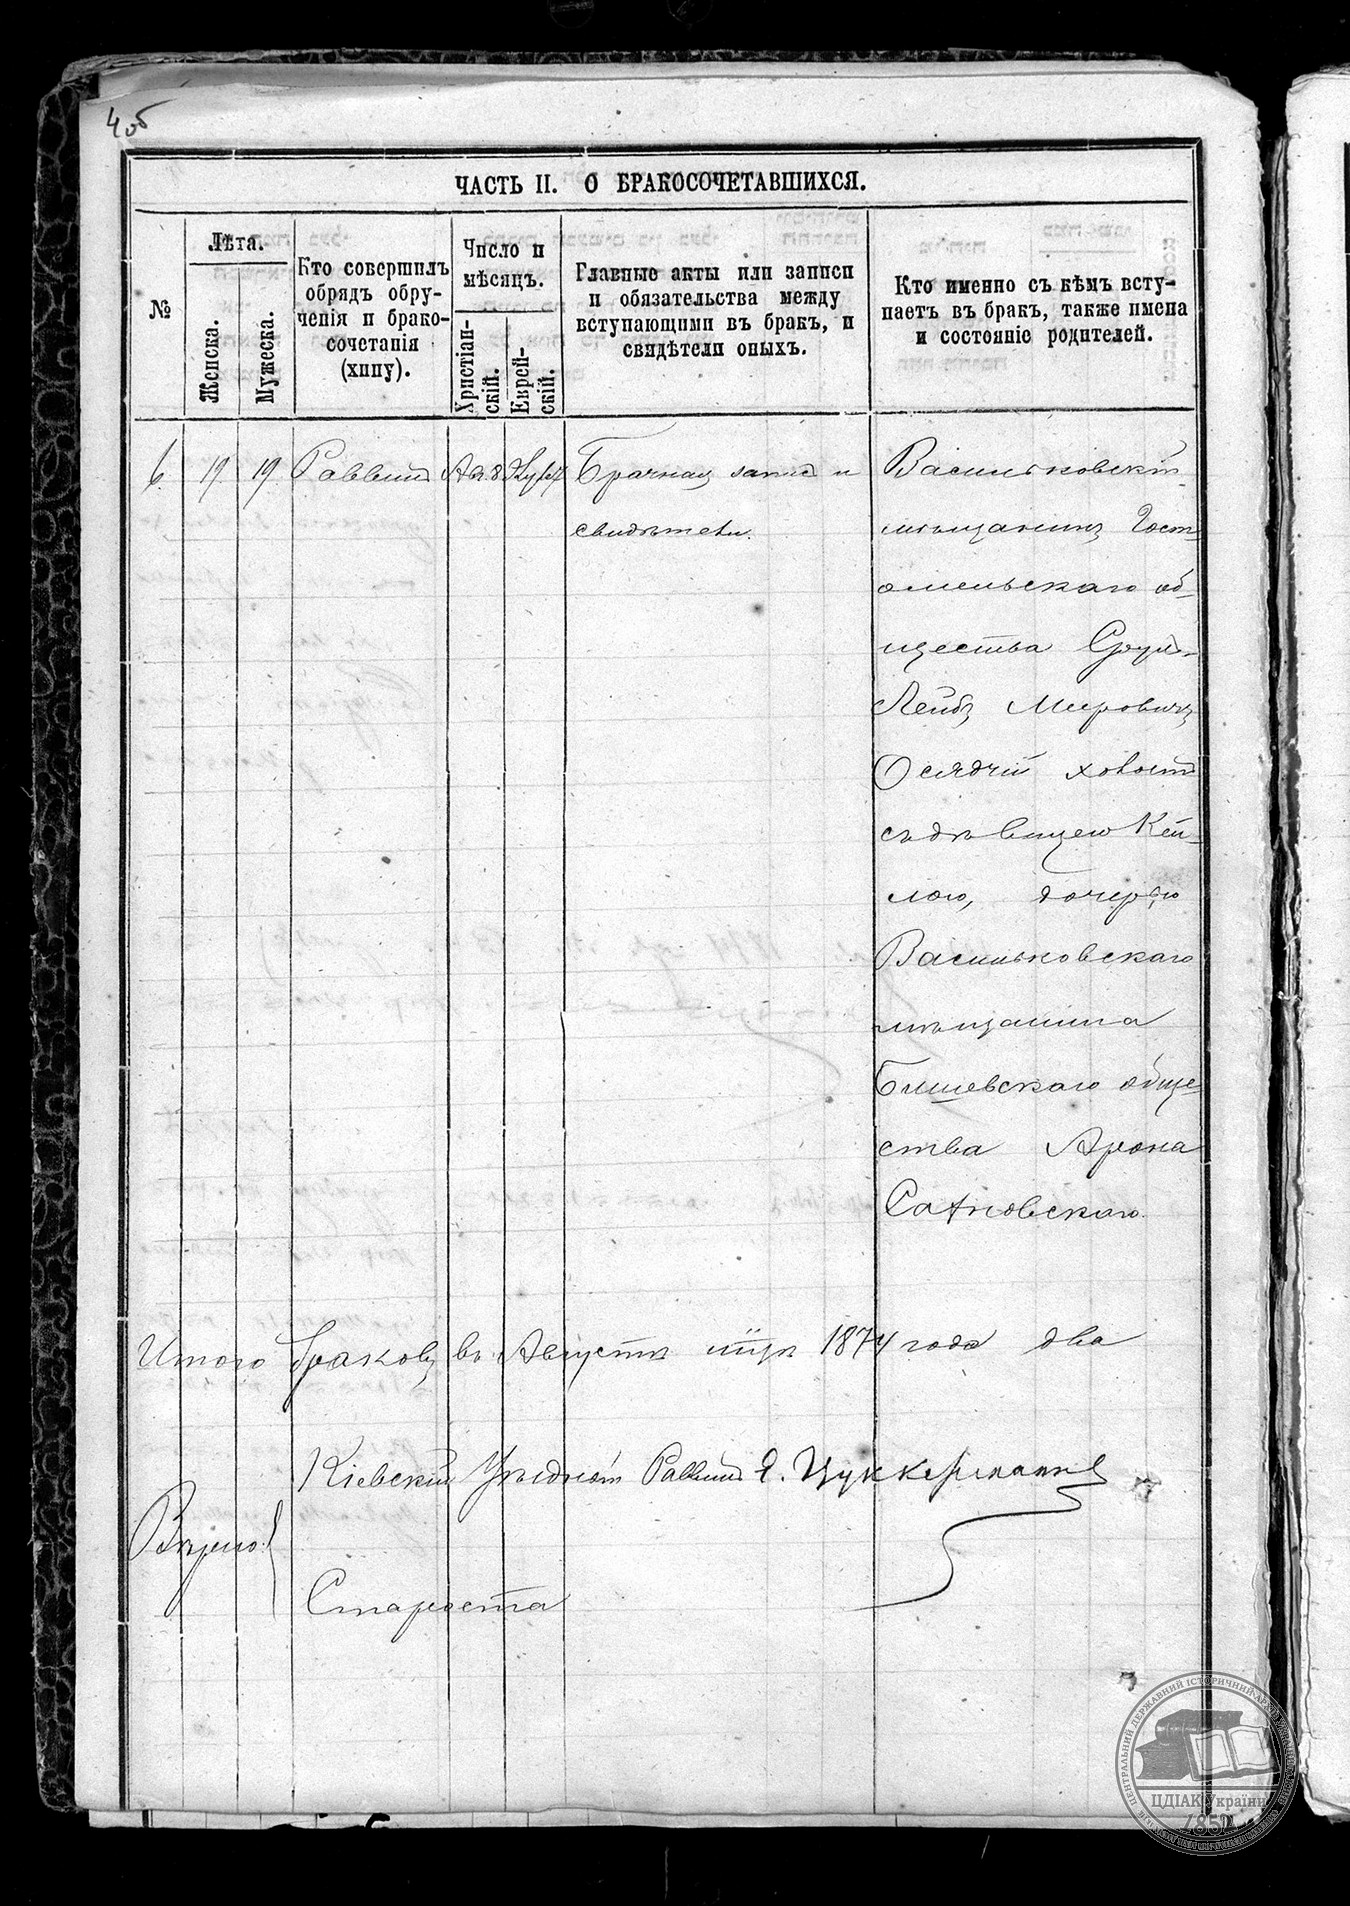 4об
ЧАСТЬ II. О БРАКОСОЧЕТАВШИХСЯ.
№
Лѣта.
Женска.
Мужеска.
Кто совершилъ
обрядъ обру-
ченія и брако-
сочетанія
(хупу).
Число и
мѣсяцъ.
Христіан-
скій.
Еврей-
скій.
Главные акты или записи
и обязательства между
вступающими въ брак, и
свидѣтели оныхъ.
Кто именно съ кѣмъ всту-
паетъ въ бракъ, также имена
и состояніе родителей.
6. 19 19 Раввинъ Авг. 8 Брачная запись и
свидѣтели.
Васильковскій
мѣщанинъ Гост-
омельскаго об-
щества Сруль-
Лейбъ Меировичъ
Осядчій холост
съ дѣвицею Кей-
лою, дочерью
Васильковскаго
мѣщанина
Бышевскаго обще-
ства Арона
Сатновскаго.
Итого браковъ въ Августѣ м-цѣ 1874 года два
Кіевскій Уѣздный Раввинъ Я. Цуккерманъ
Вѣрно:
Староста
ЦЕНТРАЛЬНИЙ ДЕРЖАВНИЙ ІСТОРИЧНИЙ АРХІВ УКРАЇНИ
ЦДІАК України
1852